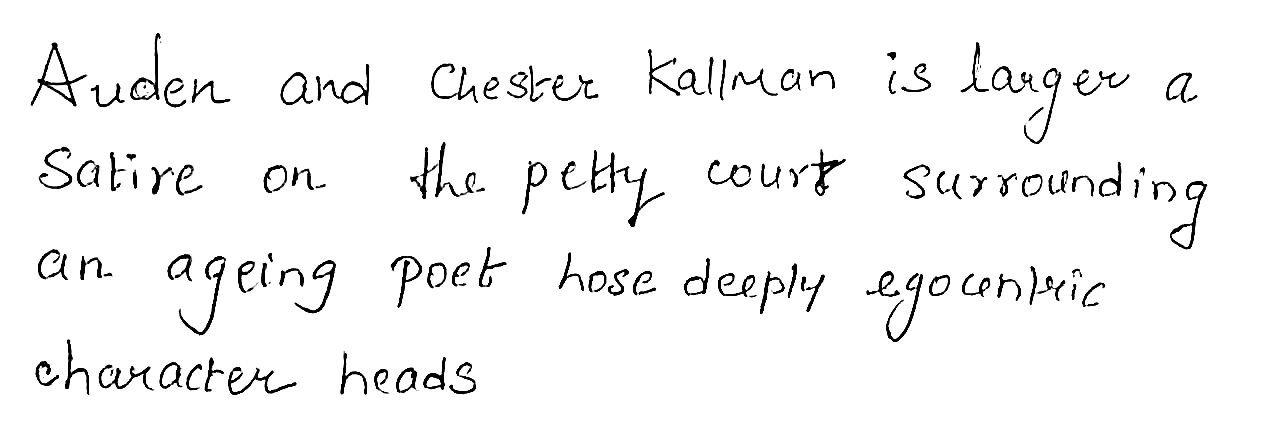 Auden and Chester Kallman is larger a
Satire on the petty court surrounding
an ageing poet hose deeply egocentric
character heads